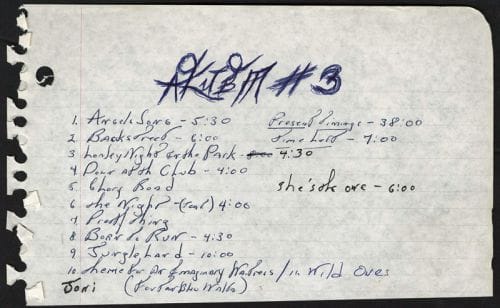 ALBUM #3
1. Angel Song - 5:30 Present Timing - 38:00
2. Backstreet - 6:00 Time Left - 7:00
3 Lonely Night in the Park - 4:30
4 Down at the Club - 4:00
5 Chevy Road She's the one - 6:00
6 the Night - 4:00
7 Pretty Thing
8 Born to Run - 4:30
9 Jungleland - 10:00
10 theme for An Imaginary Western / 11. Wild Ones
Joni